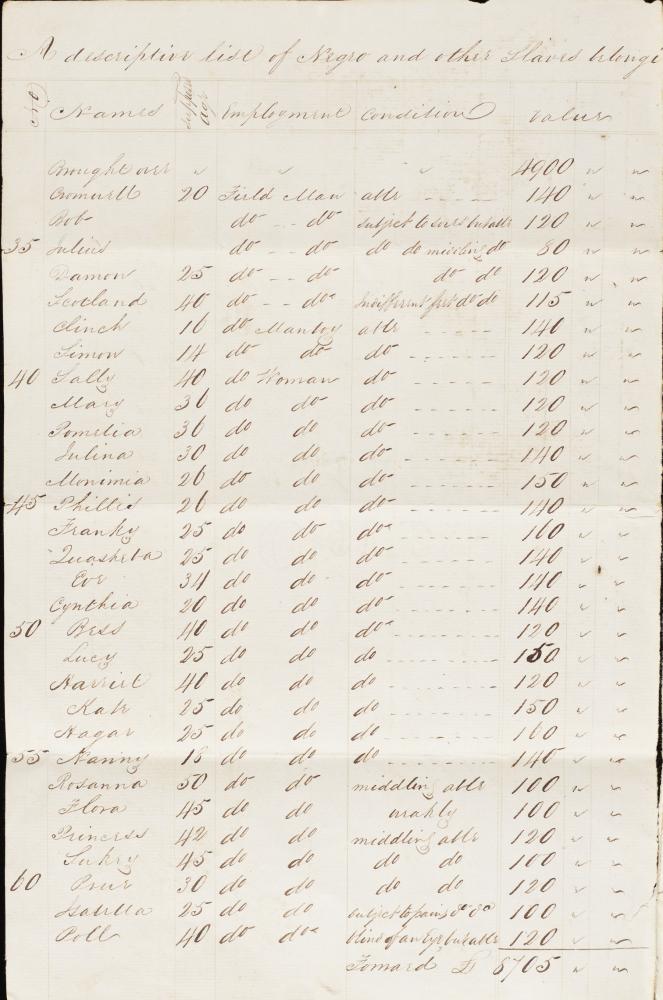 A descriptive list of Negro and other Slaves belongi
No Names Supposed age Employment Condition Value
Brought over " " " 4900 " "
Cromwell 20 Field Man able - - - - 140 " "
Bob do - - do subject to sores but able 120 " "
35 Julius do - - do do do middling do 80 " "
Damon 25 do - - do do do 120 " "
Scotland 40 do - - do Indifferent feet do do 115 " "
Clinch 16 do Manboy able - - - - - 140 " "
Simon 14 do do do - - - - - - 120 " "
40 Sally 40 do Woman do - - - - - - 120 " "
Mary 36 do do do - - - - - - 120 " "
Pamelia 36 do do do - - - - - - 120 " "
Julina 30 do do do - - - - - - 140 " "
Monimia 26 do do do - - - - - - 150 " "
45 Phillis 26 do do do - - - - - - 140 " "
Franky 25 do do do - - - - - - 160 " "
Quasheba 25 do do do - - - - - - 140 " "
Eve 34 do do do - - - - - - 140 " "
Cynthia 20 do do do - - - - - - 140 " "
50 Bess 40 do do do - - - - - - 120 " "
Lucy 25 do do do - - - - - - 150 " "
Harriet 40 do do do - - - - - - 120 " "
Kate 25 do do do - - - - - - 150 " "
Hagar 25 do do do - - - - - - 160 " "
55 Nanny 18 do do do - - - - - - 140 " "
Rosanna 50 do do middling able 100 " "
Flora 45 do do weakly 100 " "
Princess 42 do do middling able 120 " "
Sukey 45 do do do do 100 " "
60 Prue 30 do do do do 120 " "
Isabella 25 do do subject to pains do do 100 " "
Poll 40 do do blind of an Eye but able 120 " "
Forward £ 8705 " "